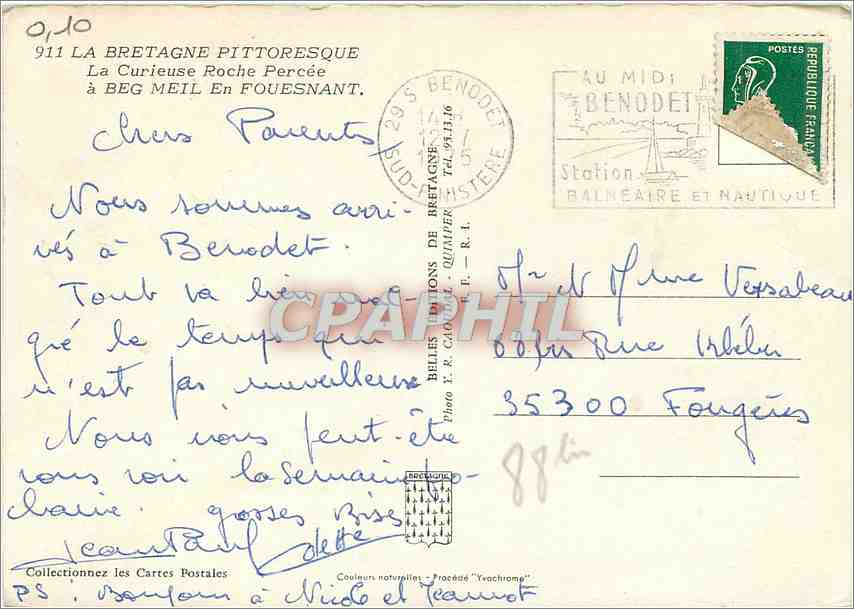 0,10
911 LA BRETAGNE PITTORESQUE
La Curieuse Roche Percée
à BEG MEIL En FOUESNANT.
Chers Parents
Nous sommes arri-
vés à Benodet.
Tout va bien mal-
gré le temps qui
n'est pas merveilleux
Nous irons peut-être
vous voir la semaine pro-
chaine. grosses Bises
Jean Paul Odette
Collectionnez les Cartes Postales
PS : Bonjour à Nicole et Jeannot
29 S BENODET
SUD-FINISTERE
AU MIDI
BENODET
Station
BALNEAIRE ET NAUTIQUE
POSTES
REPUBLIQUE FRANCA
BELLES EDITIONS DE BRETAGNE
Photo Y. R. CAOUDAL - QUIMPER Tél. 95.13.16
E. F. — R. I.
CPAPHIL
Mr N Mme Versabeau
88 bis Rue Kléber
35300 Fougères
88 bis
BRETAGNE
Couleurs naturelles - Procédé "Yvachrome"